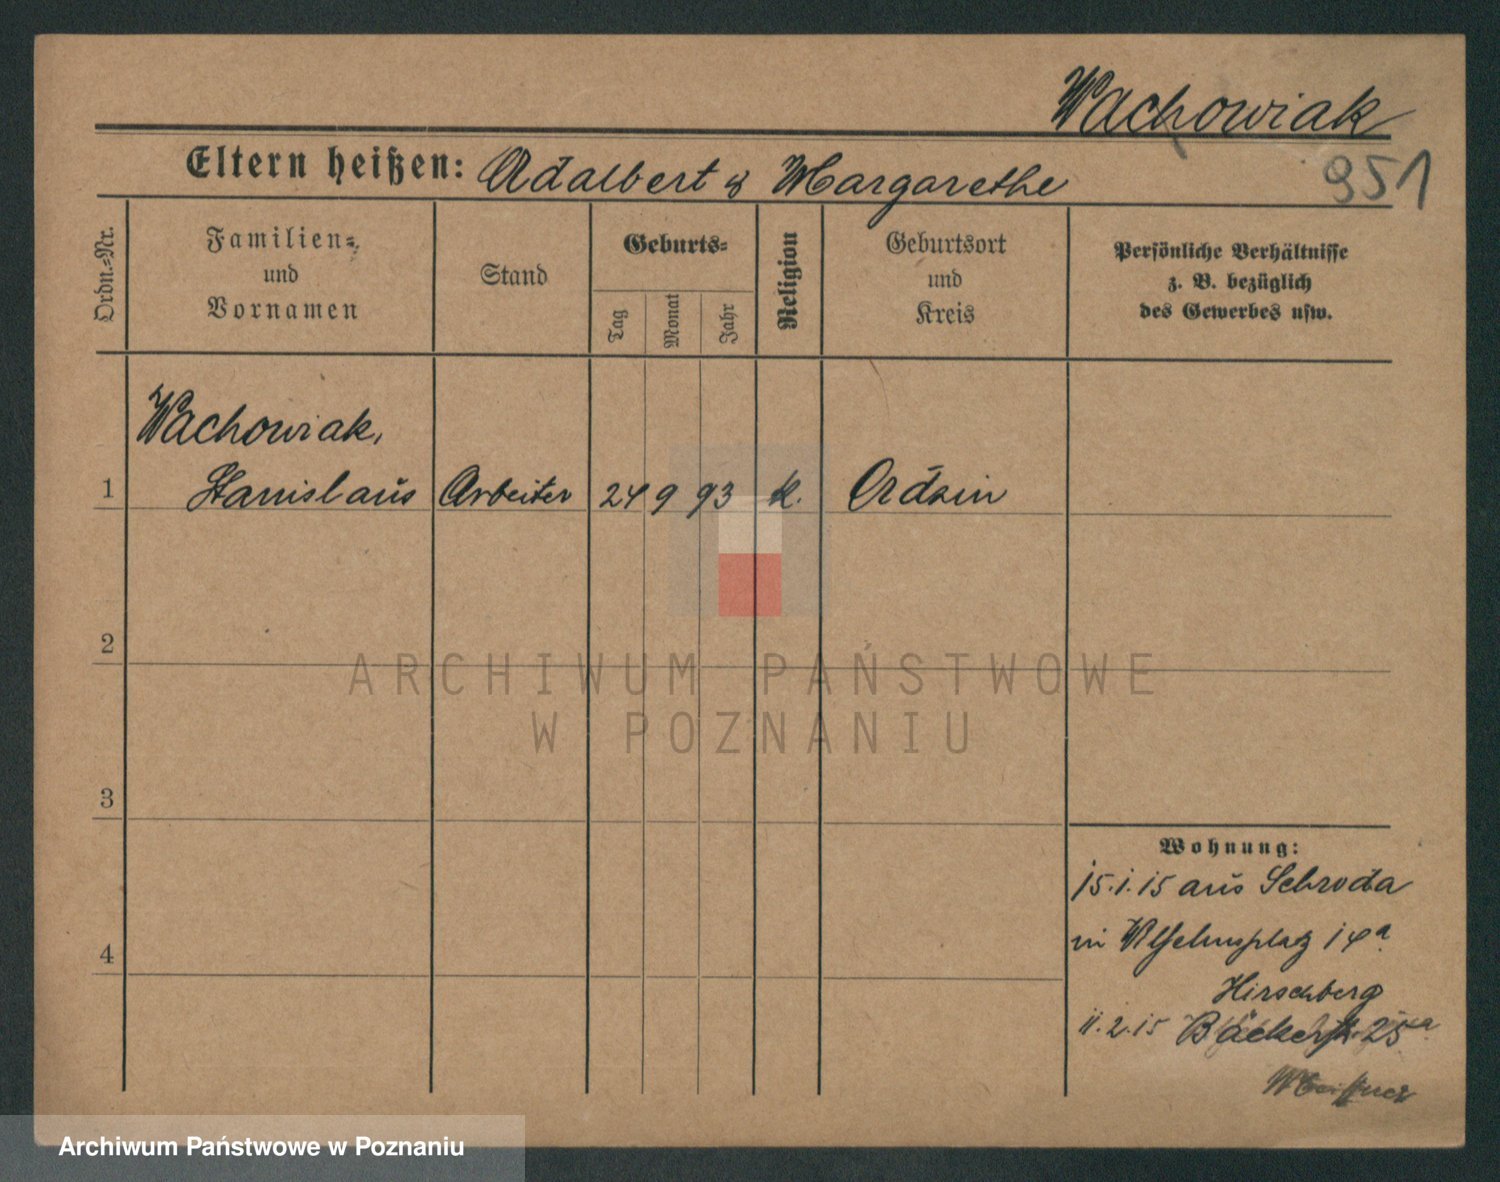 Wachowiak
951
Eltern heißen: Adalbert & Margarethe
Ordn.-Nr.
Familien- und Vornamen
Stand
Geburts-
Tag
Monat
Jahr
Religion
Geburtsort und Kreis
Persönliche Verhältnisse
z. B. bezüglich
des Gewerbes usw.
Wachowiak,
1 Stanislaus Arbeiter 24 9 93 k. Ordzin
2
ARCHIWUM PAŃSTWOWE
W POZNANIU
3
Wohnung:
15.1.15 aus Schroda
in Wilhelmsplatz 14a
4
Hirschberg
11.2.15 Bäckerstr. 25a
Archiwum Państwowe w Poznaniu